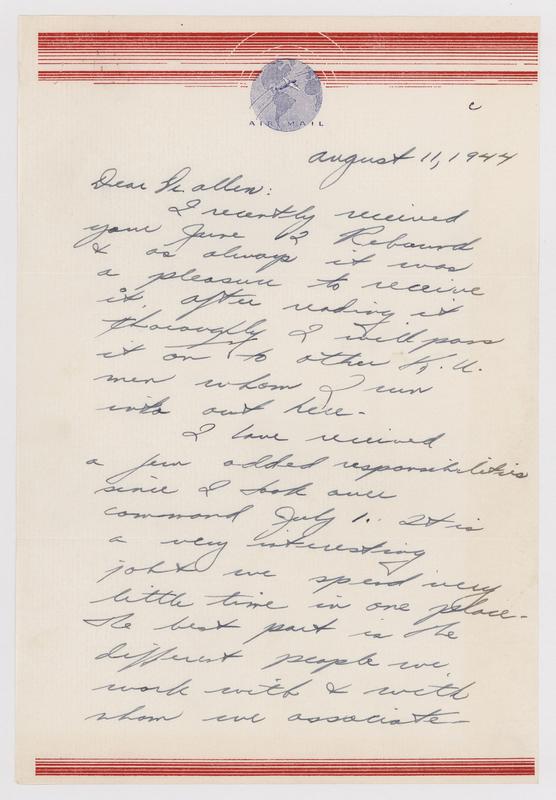 AIR MAIL
c
August 11, 1944
Dear Dr. Allen:
I recently received
your June 2 Rebound
& as always it was
a pleasure to receive
it. After reading it
thoroughly I will pass
it on to other K. U.
men whom I run
into out here-
I have received
a few added responsibilities
since I took over
command July 1. It is
a very interesting
job & we spend very
little time in one place-
The best part is the
different people we
work with & with
whom we associate-